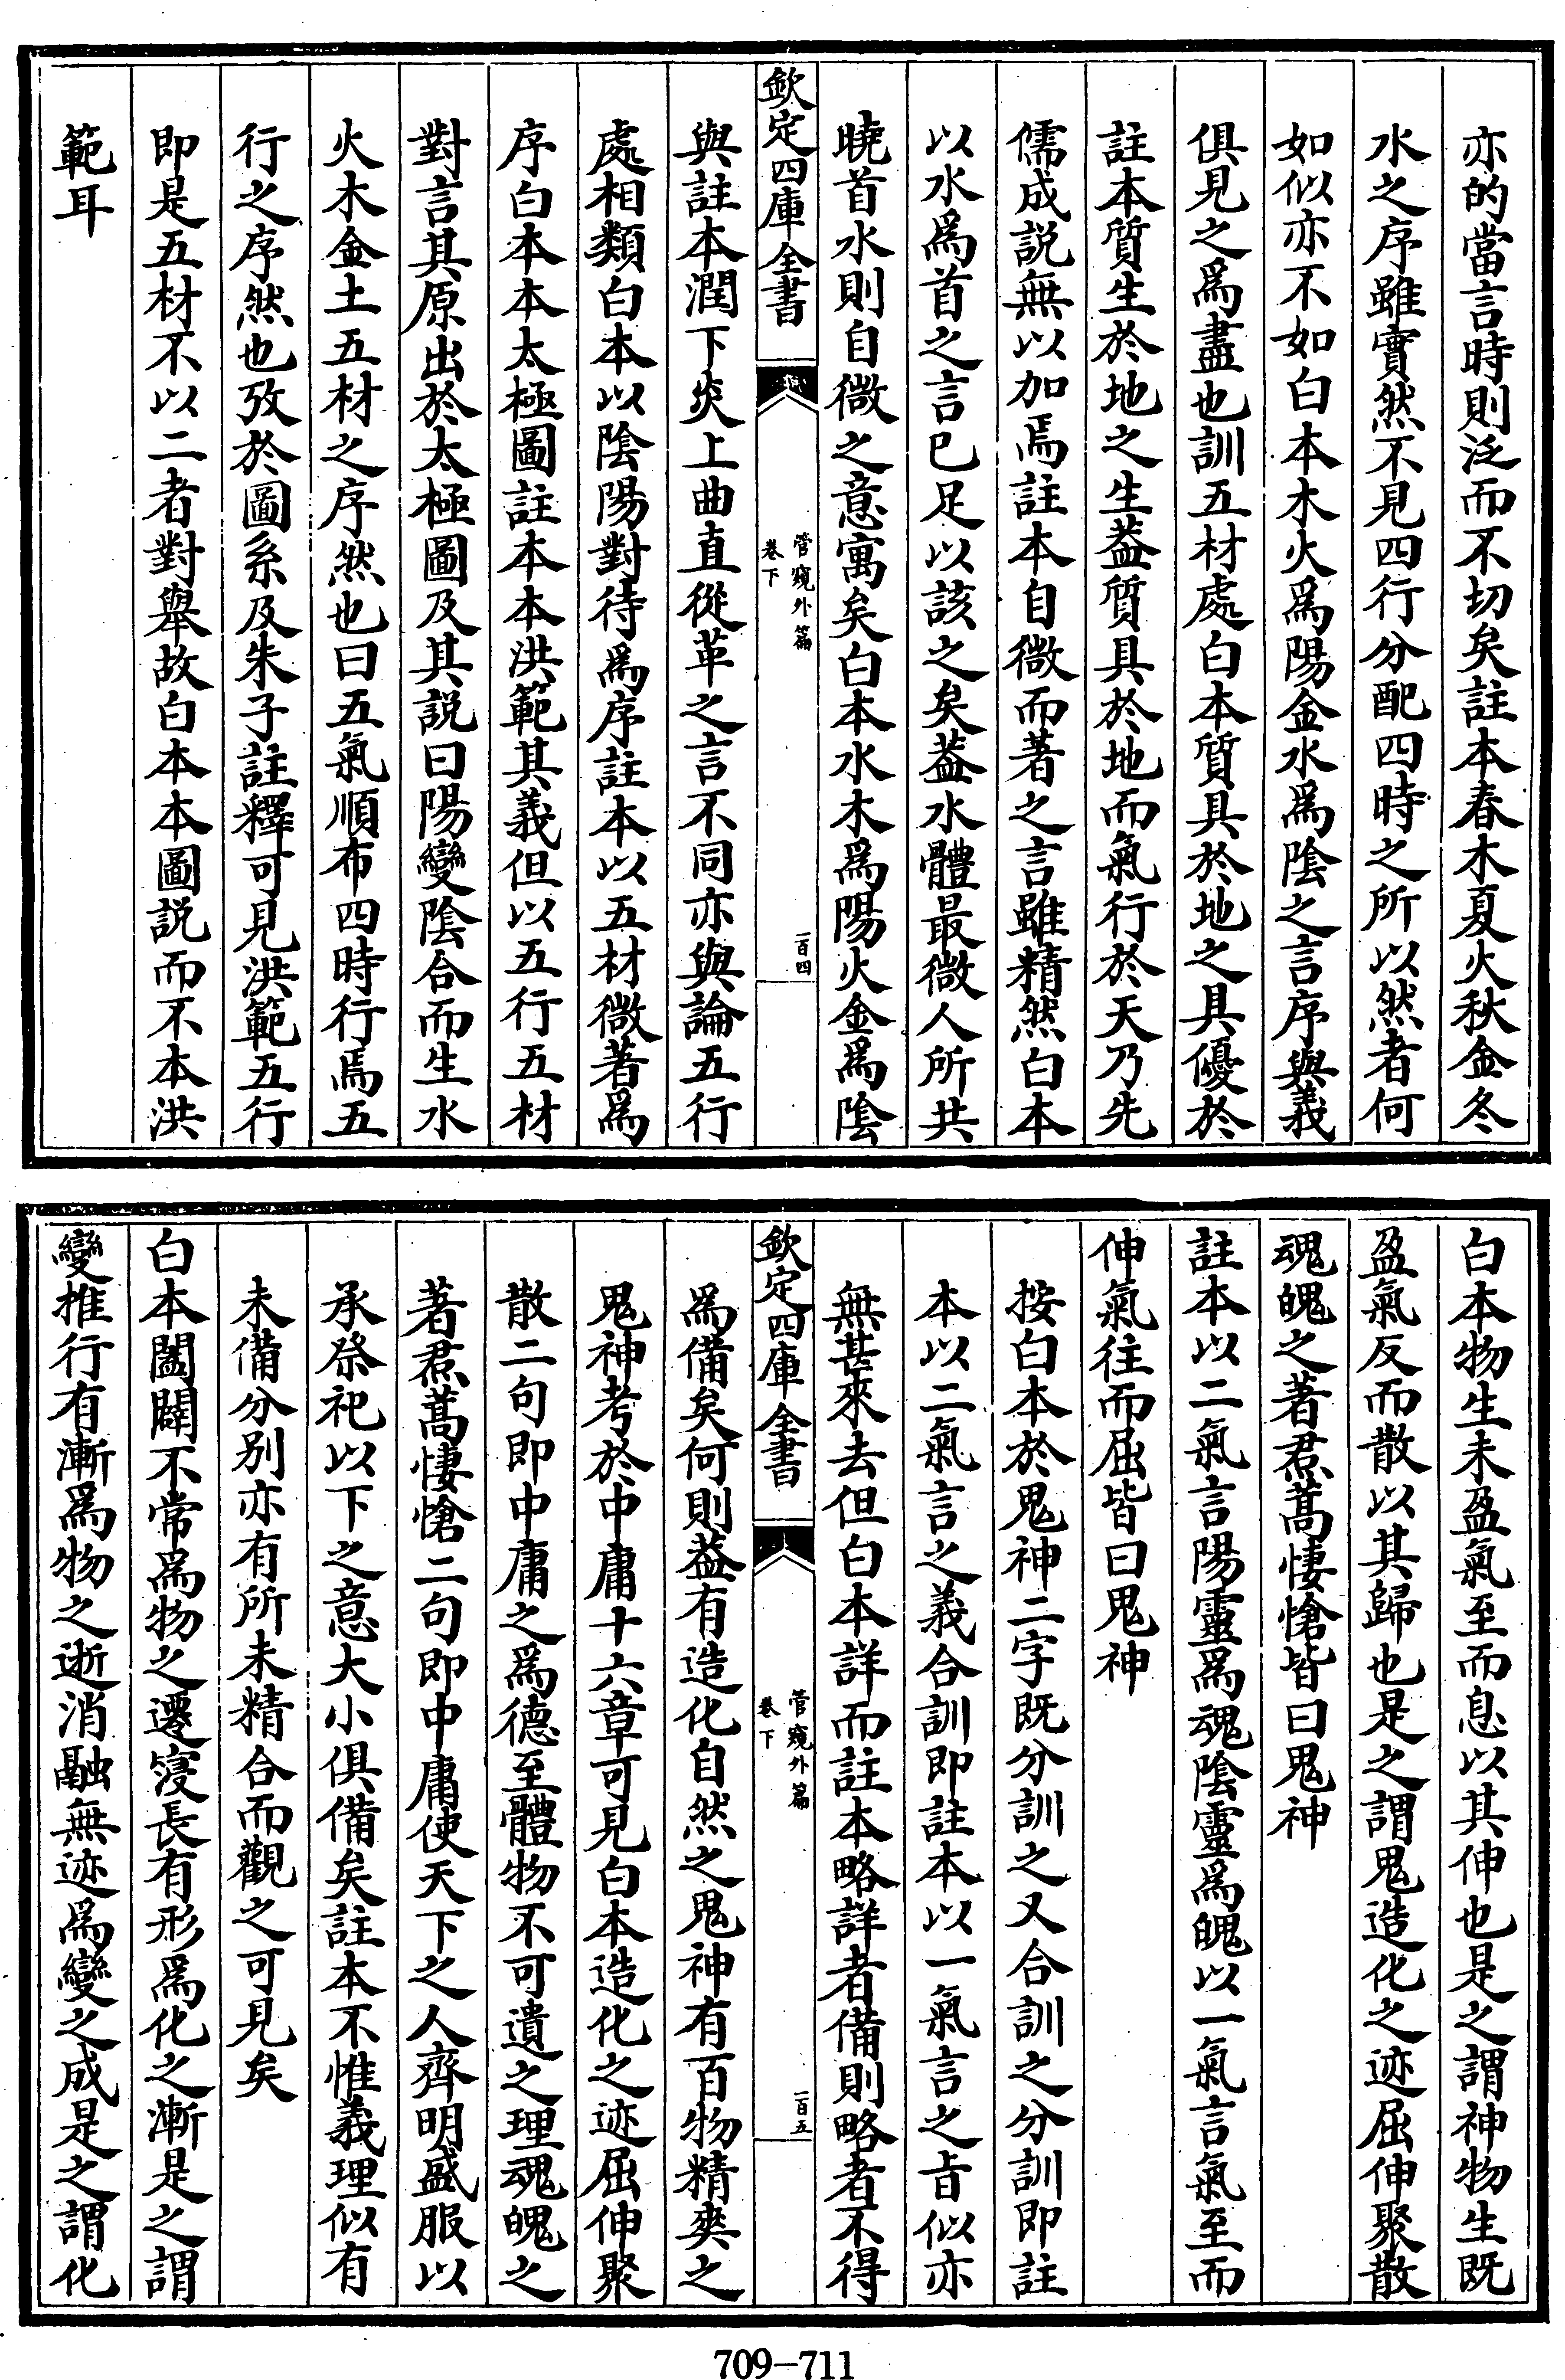 亦的當言時則泛而不切矣註本春木夏火秋金冬
水之序雖實然不見四行分配四時之所以然者何
如似亦不如白本木火爲陽金水爲陰之言序與義
俱見之爲盡也訓五材處白本質具於地之具優於
註本質生於地之生蓋質具於地而氣行於天乃先
儒成説無以加焉註本自微而著之言雖精然白本
以水爲首之言已足以該之矣蓋水體最微人所共
曉首水則自微之意寓矣白本水木爲陽火金爲陰
欽定四庫全書
管窺外篇
卷下
一百四
與註本潤下炎上曲直從革之言不同亦與論五行
處相類白本以陰陽對待爲序註本以五材微著爲
序白本本太極圖註本本洪範其義但以五行五材
對言其原出於太極圖及其説曰陽變陰合而生水
火木金土五材之序然也曰五氣順布四時行焉五
行之序然也攷於圖系及朱子註釋可見洪範五行
即是五材不以二者對舉故白本本圖説而不本洪
範耳
白本物生未盈氣至而息以其伸也是之謂神物生既
盈氣反而散以其歸也是之謂鬼造化之迹屈伸聚散
魂魄之著焄蒿悽愴皆曰鬼神
註本以二氣言陽靈爲魂陰靈爲魄以一氣言氣至而
伸氣往而屈皆曰鬼神
按白本於鬼神二字既分訓之又合訓之分訓即註
本以二氣言之義合訓即註本以一氣言之旨似亦
無甚來去但白本詳而註本略詳者備則略者不得
欽定四庫全書
管窺外篇
卷下
一百五
爲備矣何則蓋有造化自然之鬼神有百物精爽之
鬼神考於中庸十六章可見白本造化之迹屈伸聚
散二句即中庸之爲德至體物不可遺之理魂魄之
著焄蒿悽愴二句即中庸使天下之人齊明盛服以
承祭祀以下之意大小俱備矣註本不惟義理似有
未備分别亦有所未精合而觀之可見矣
白本闔闢不常爲物之遷寖長有形爲化之漸是之謂
變推行有漸爲物之逝消融無迹爲變之成是之謂化
709-711